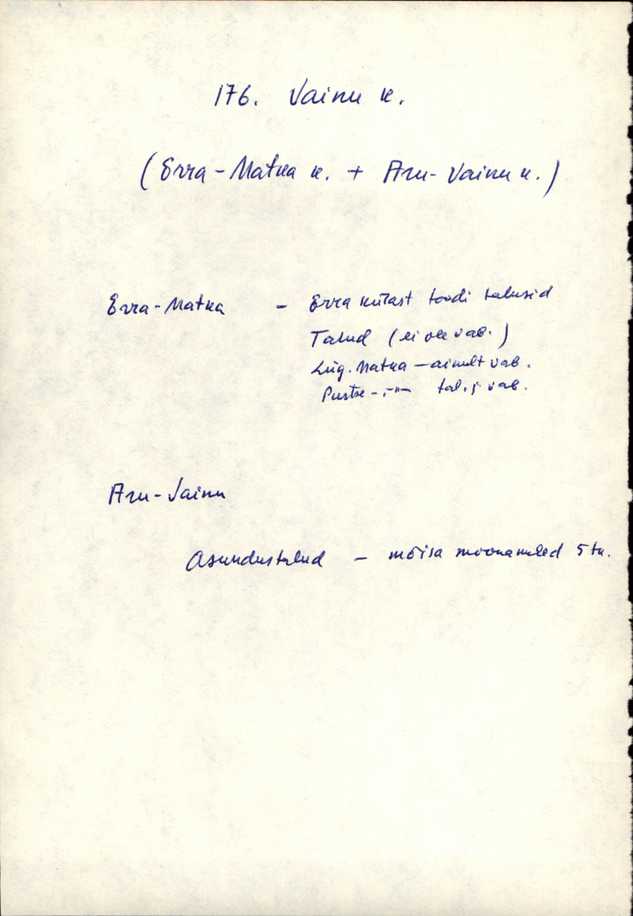 176. Vainu k.
(Erra-Matka k. + Aru-Vainu k.)
Erra-Matka - Erra külast toodi talusid
Talud (ei ole vab.)
Lüg. Matka - ainult vab.
Püstse -"- tal. j. vab.
Aru-Vainu
Asundustalud - mõisa moonamehed 5 tk.